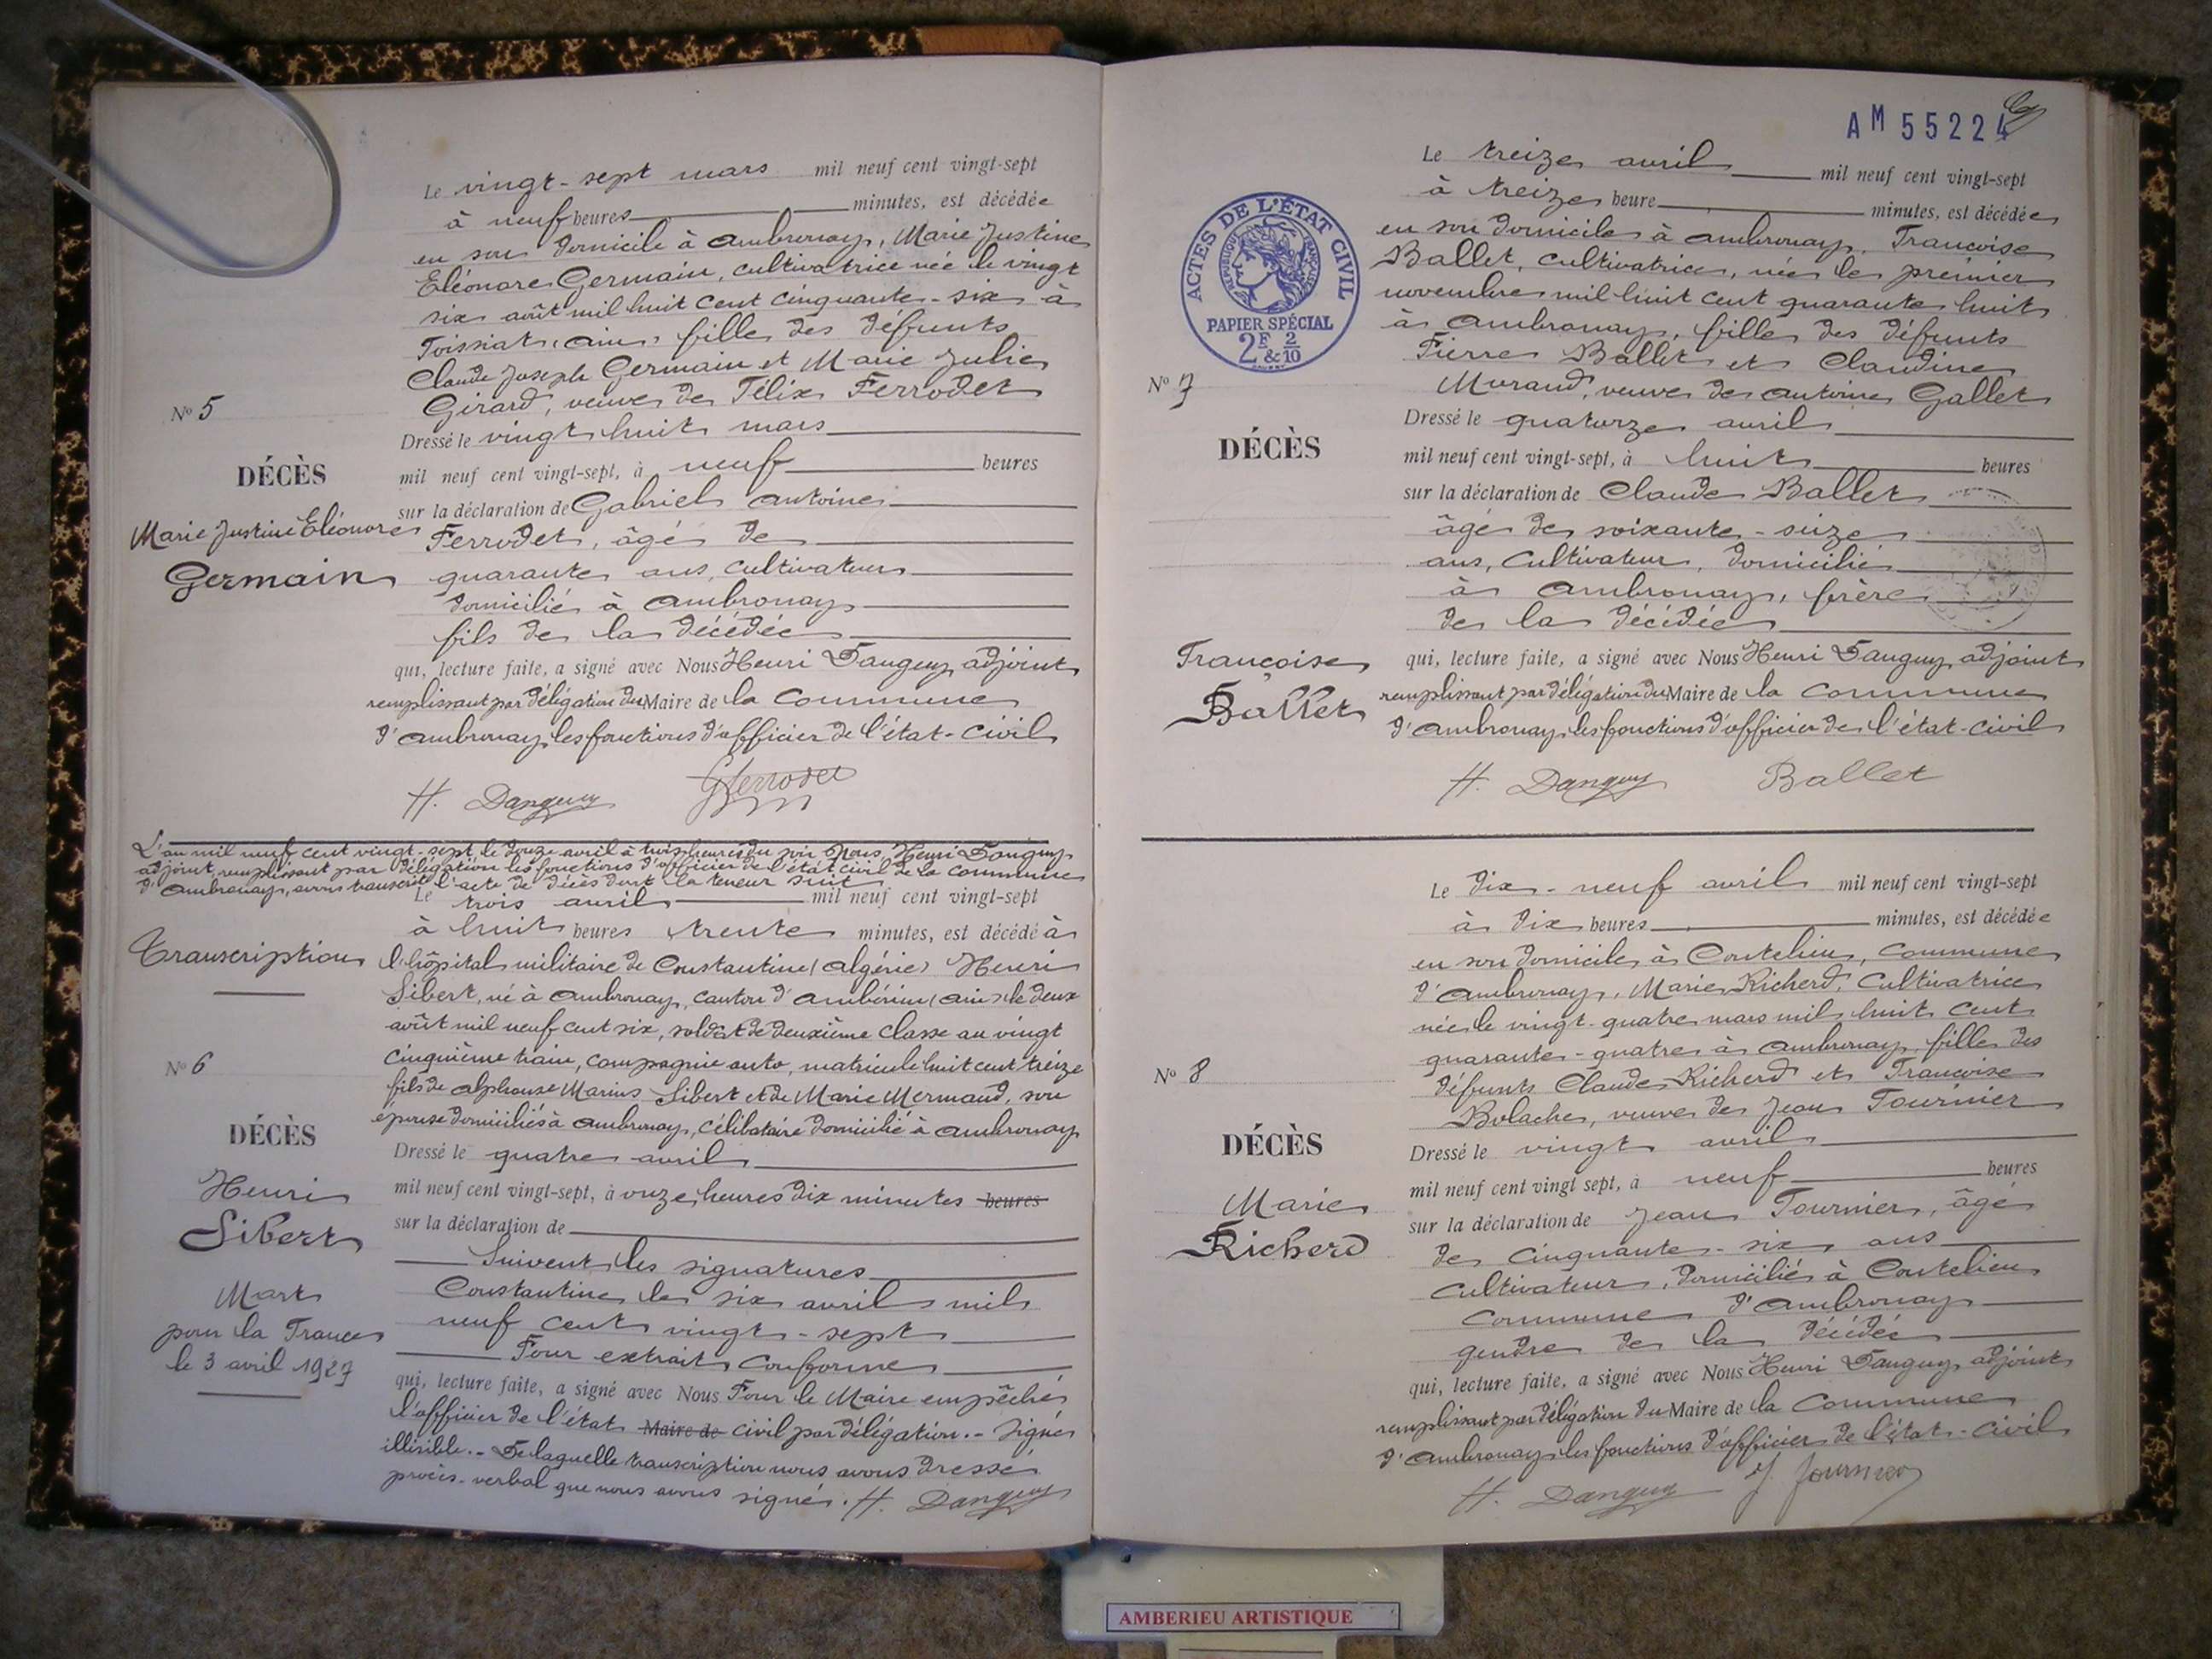 Le vingt-sept mars mil neuf cent vingt-sept
à neuf heures minutes, est décédée
en son domicile à Ambronay, Marie Justine
Eléonore Germain, cultivatrice née le vingt
six août mil huit cent cinquante-six à
Toissiat (Ain) fille des défunts
Claude Joseph Germain et Marie Julie
Girard, veuve de Félix Ferrodet
Nº 5
Dressé le vingt huit mars
DÉCÈS
mil neuf cent vingt-sept, à neuf heures
sur la déclaration de Gabriel Antoine
Marie Justine Eléonore
Germain
Ferrodet, âgé de
quarante ans, cultivateur
domicilié à Ambronay
fils de la décédée
qui, lecture faite, a signé avec Nous Henri Danguy, adjoint
remplissant par délégation du Maire de la commune
d'Ambronay, les fonctions d'officier de l'état-civil
H. Danguy GFerrodet
L'an mil neuf cent vingt-sept, le douze avril à trois heures du soir, Nous Henri Danguy
adjoint, remplissant par délégation les fonctions d'officier de l'état civil de la commune
d'Ambronay, avons transcrit l'acte de décès dont la teneur suit
Le trois avril mil neuf cent vingt-sept
à huit heures trente minutes, est décédé à
Transcription
l'hôpital militaire de Constantine (Algérie) Henri
Sibert, né à Ambronay, canton d'Ambérieu (Ain) le deux
août mil neuf cent six, soldat de deuxième classe au vingt
cinquième train, compagnie auto, matricule huit cent treize
fils de Alphonse Marius Sibert et de Marie Mermand, son
épouse domiciliés à Ambronay, célibataire domicilié à Ambronay
Nº 6
DÉCÈS
Henri
Sibert
Mort
pour la France
le 3 avril 1927
Dressé le quatre avril
mil neuf cent vingt-sept, à onze heures dix minutes heures
sur la déclaration de
Suivent les signatures
Constantine le six avril mil
neuf cent vingt-sept
Pour extrait conforme
qui, lecture faite, a signé avec Nous Pour le Maire empêché
l'officier de l'état Maire de civil par délégation.- Signé
illisible.- De laquelle transcription nous avons dressé
procès-verbal que nous avons signé. H. Danguy
AM 55224
Le treize avril mil neuf cent vingt-sept
à treize heure minutes, est décédée
en son domicile à Ambronay, Françoise
Ballet, cultivatrice, née le premier
novembre mil huit cent quarante huit
à Ambronay, fille des défunts
Pierre Ballet et Claudine
Morand, veuve de Antoine Gallet
ACTES DE L'ÉTAT CIVIL
RÉPUBLIQUE FRANÇAISE
PAPIER SPÉCIAL
2F & 2/10
Nº 7
DÉCÈS
Françoise
Ballet
Dressé le quatorze avril
mil neuf cent vingt-sept, à huit heures
sur la déclaration de Claude Ballet
âgé de soixante-seize
ans, cultivateur, domicilié
à Ambronay, frère
de la décédée
qui, lecture faite, a signé avec Nous Henri Danguy, adjoint
remplissant par délégation du Maire de la commune
d'Ambronay, les fonctions d'officier de l'état-civil
H. Danguy Ballet
Le dix-neuf avril mil neuf cent vingt-sept
à dix heures minutes, est décédée
en son domicile à Coutelieu, commune
d'Ambronay, Marie Richerd, cultivatrice
née le vingt-quatre mars mil huit cent
quarante-quatre à Ambronay, fille des
défunts Claude Richerd et Françoise
Bolache, veuve de Jean Tournier
Nº 8
DÉCÈS
Marie
Richerd
Dressé le vingt avril
mil neuf cent vingt sept, à neuf heures
sur la déclaration de Jean Tournier, âgé
de cinquante-six ans
cultivateur, domicilié à Coutelieu
commune d'Ambronay
gendre de la décédée
qui, lecture faite, a signé avec Nous Henri Danguy, adjoint
remplissant par délégation du Maire de la commune
d'Ambronay, les fonctions d'officier de l'état-civil
H. Danguy J Tournier
AMBERIEU ARTISTIQUE